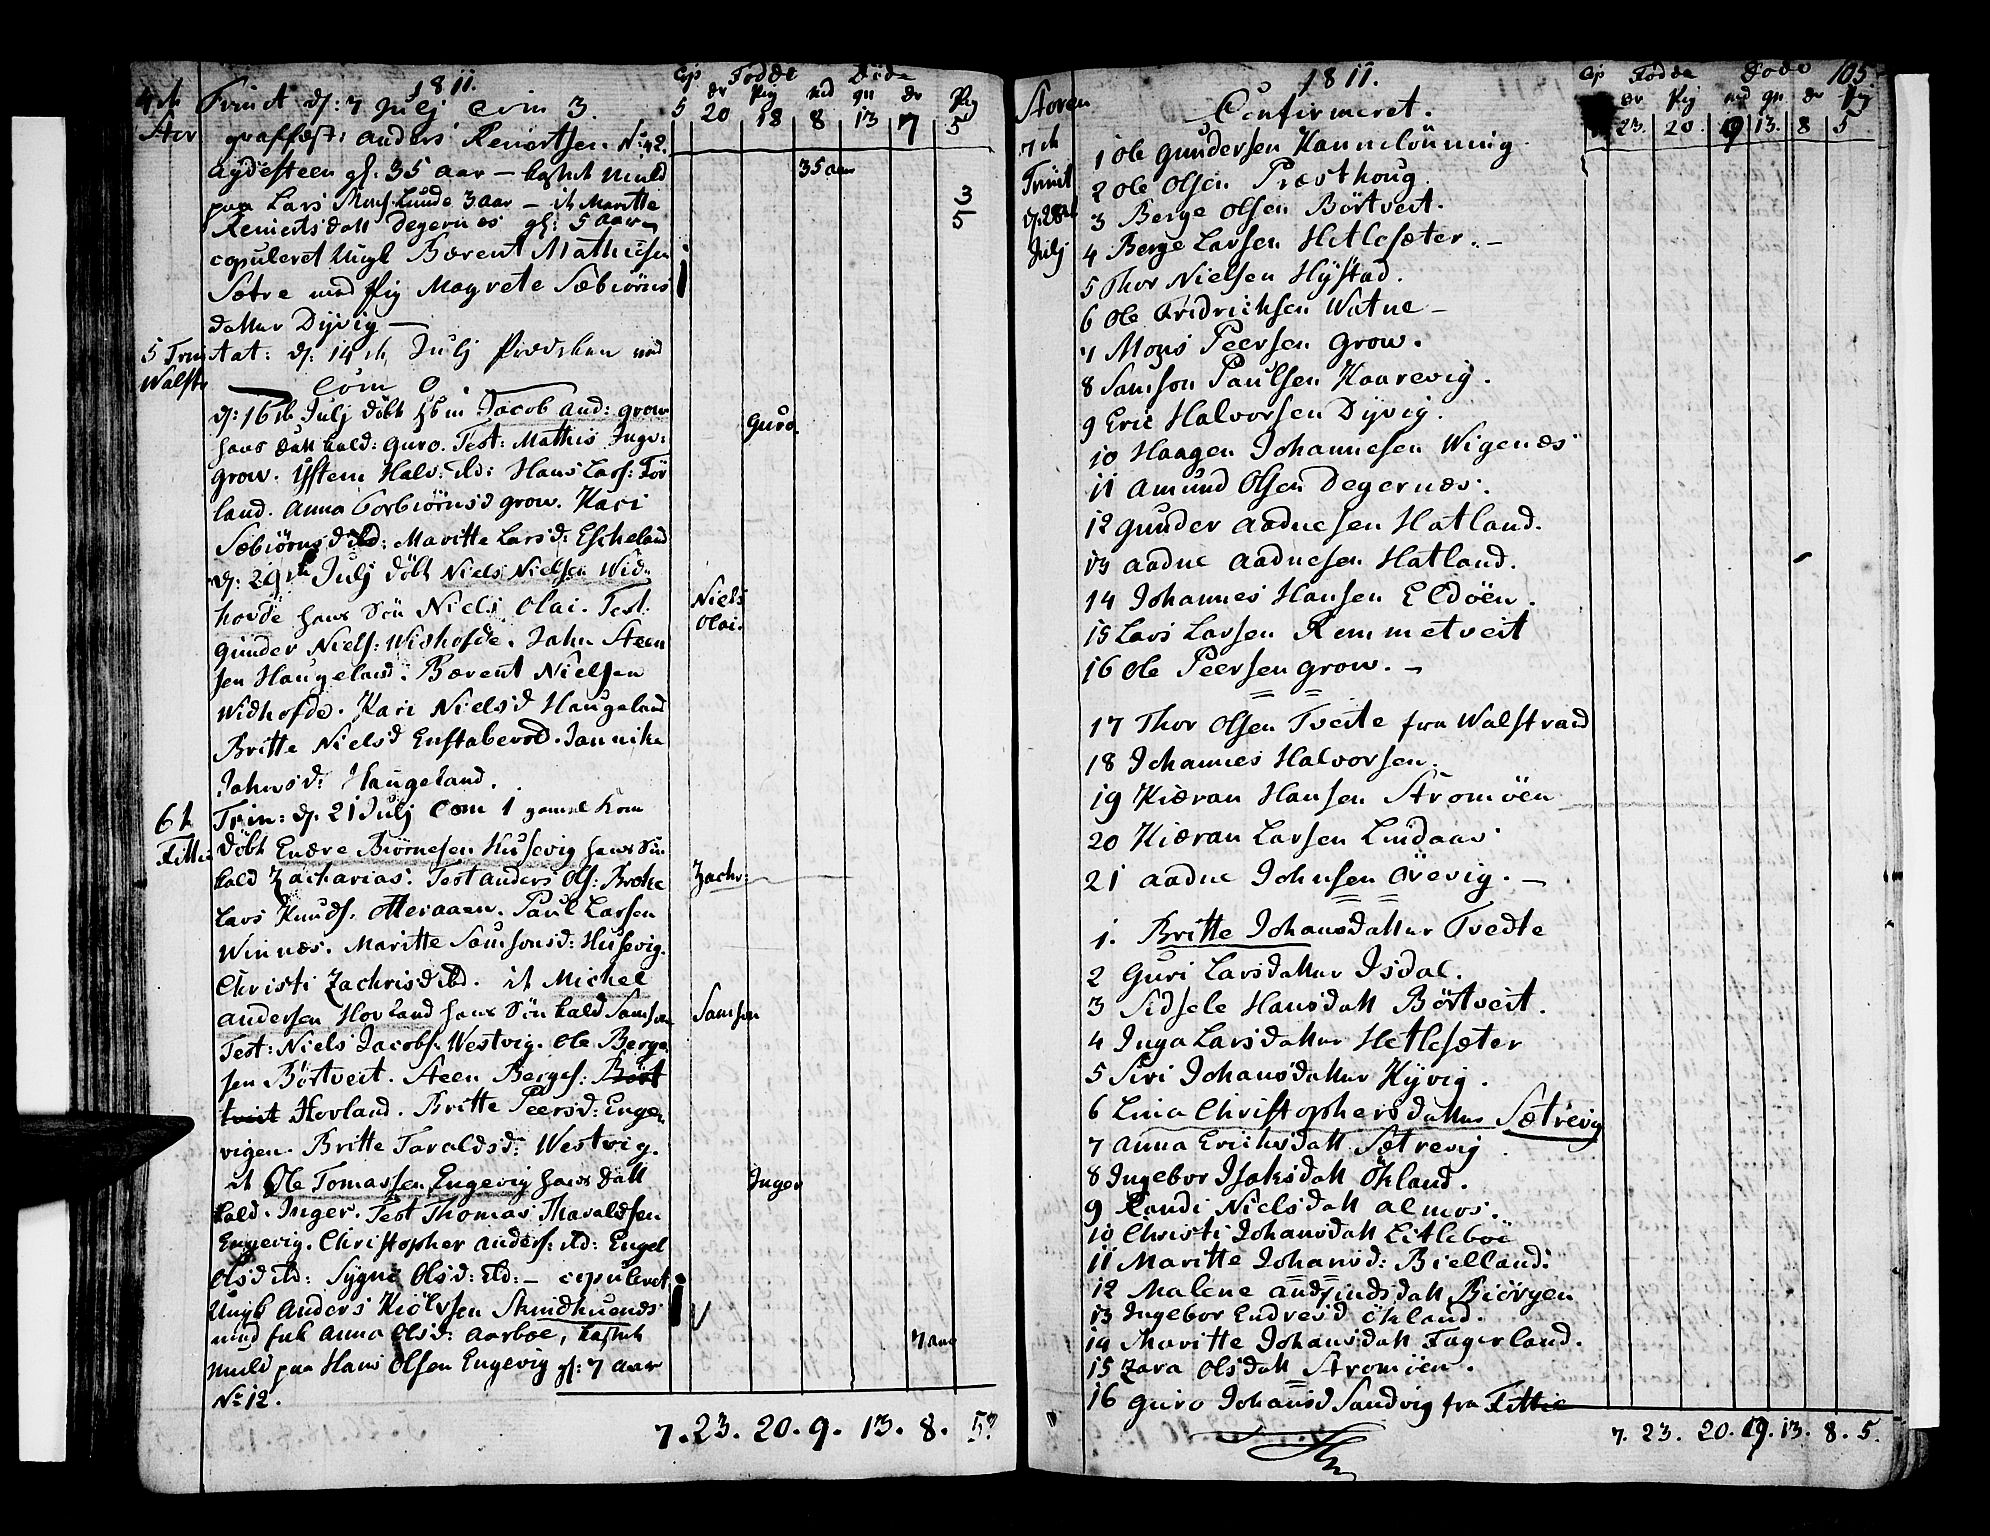 1811.
Cop Fødde Døde
Dr Pig Md Qu Dr Pig
5 20 18 8 13 7 5
4de Trinit d: 7 Julj Com 3.
Stor graffæst: Anders Reinertsen No 42.
Aydesteen gl. 35 aar — kastet Muld 35 aar
paa Lars Mons: Lunde 3 aar — it Maritte 3
Reniertsdatt Degernes gl: 5 aar 5
copuleret Ungk Bærent Mathiesen
Sætre med Pig Magrete Sæbiørns
datter Dyvig —
5 Trinitat: d: 14de Julj Prædiken ved
Walstr Com 0.
d: 16de Julj døbt hiem Jacob And: Grow
hans Datt kald: Guro. Test: Mathis Ingv: Guro
Grow. Ystern Halv: ibd: Hans Lars: Tør
land. Anna Torbiørnsd Grow. Kari
Sæbiørnsd ibd: Maritte Larsd: Escheland
d: 29de Julj døbt Niels Nielsen Wid
hovde hans Søn Niels Olai. Test: Niels Olai.
Gunder Niels: Widhofde. John Steen
sen Haugeland. Bærent Nielsen
Widhofde. Kari Nielsd Haugeland
Britte Nielsd Enstabevold. Jannike
Johnsd: Haugeland.
6te Trin: d: 21 Julj Com 1 gamel Kone
Fittie døbt Endre Biørnesen Husevig hans Søn
kald Zacharias. Test Anders Ols: Broke Zachr:
Lars Knuds. Otteraaen. Paul Larsen
Winnæs. Maritte Samsonsd: Husevig.
Christi Zachrisd ibd. it Michel
Andersen Hovland hans Søn kald Samson Samson
Test: Niels Jacobs. Westvig. Ole Berge
sen Børtveit. Steen Berges: Børt
tveit Hovland. Britte Peersd: Enge
vigen. Britte Taraldsd: Westvig.
it Ole Tomassen Engevig hans Datt Inger
kald. Inger. Test Thomas Tharaldsen
Engevig. Christopher Anders: ibd: Engel
Olsd ibd: Sygni Olsd: ibd: — copuleret
Ungk Anders Kiølvsen Skindhuenæs
med Enk Anna Olsd: Aarboe, kastet 7 aar
Muld paa Hans Olsen Engevig gl: 7 aar
No 12.
7. 23. 20. 9. 13. 8. 5?
1811. 105
Cop Fødde Døde
Dr Pig Md Qu Dr Pig
23. 20. 9 13. 8 5
Storen
7de
Trinit
d: 28de
Julj
Confirmeret.
1 Ole Gundersen Kannelønning.
2 Ole Olsen Præsthoug.
3 Berge Olsen Børtveit.
4 Berge Larsen Hetlesæter. —
5 Thor Nielsen Hystad.
6 Ole Fridrichsen Watne —
7 Mons Peersen Grow.
8 Samson Paulsen Kaarevig.
9 Eric Halvorsen Dyvig.
10 Haagen Johannesen Wigenæs
11 Amund Olsen Degernæs.
12 Gunder Aadnesen Hatland.
13 Aadne Aadnesen Hatland.
14 Johannes Hansen Eldøen.
15 Lars Larsen Remmetveit
16 Ole Peersen Grow. —
17 Thor Olsen Tveite fra Walstrand
18 Johannes Halvorsen.
19 Kiæran Hansen Strømøen
20 Kiæran Larsen Lindaas
21 Aadne Johnsen Øvevig. —
1. Britte Johansdatter Tvedte
2 Guri Larsdatter Isdal.
3 Sidsele Hansdatt Børtveit.
4 Inga Larsdatter Hetlesæter
5 Siri Johansdatter Kyvig.
6 Lina Christophersdatter Sætrevig
7 Anna Erichsdatt Sætrevig
8 Ingebor Isaksdatt Økland.
9 Randi Nielsdatt Almos.
10 Christi Johansdatt Litlebøe
11 Maritte Johansd: Bielland:
12 Malene Audfindsdatt Biørgen
13 Ingebor Endresd Økland.
14 Maritte Johansdatt Fagerland.
15 Zara Olsdatt Strømøen.
16 Guro Johansd Sandvig fra Fittie
7. 23. 20. 19. 13. 8. 5.